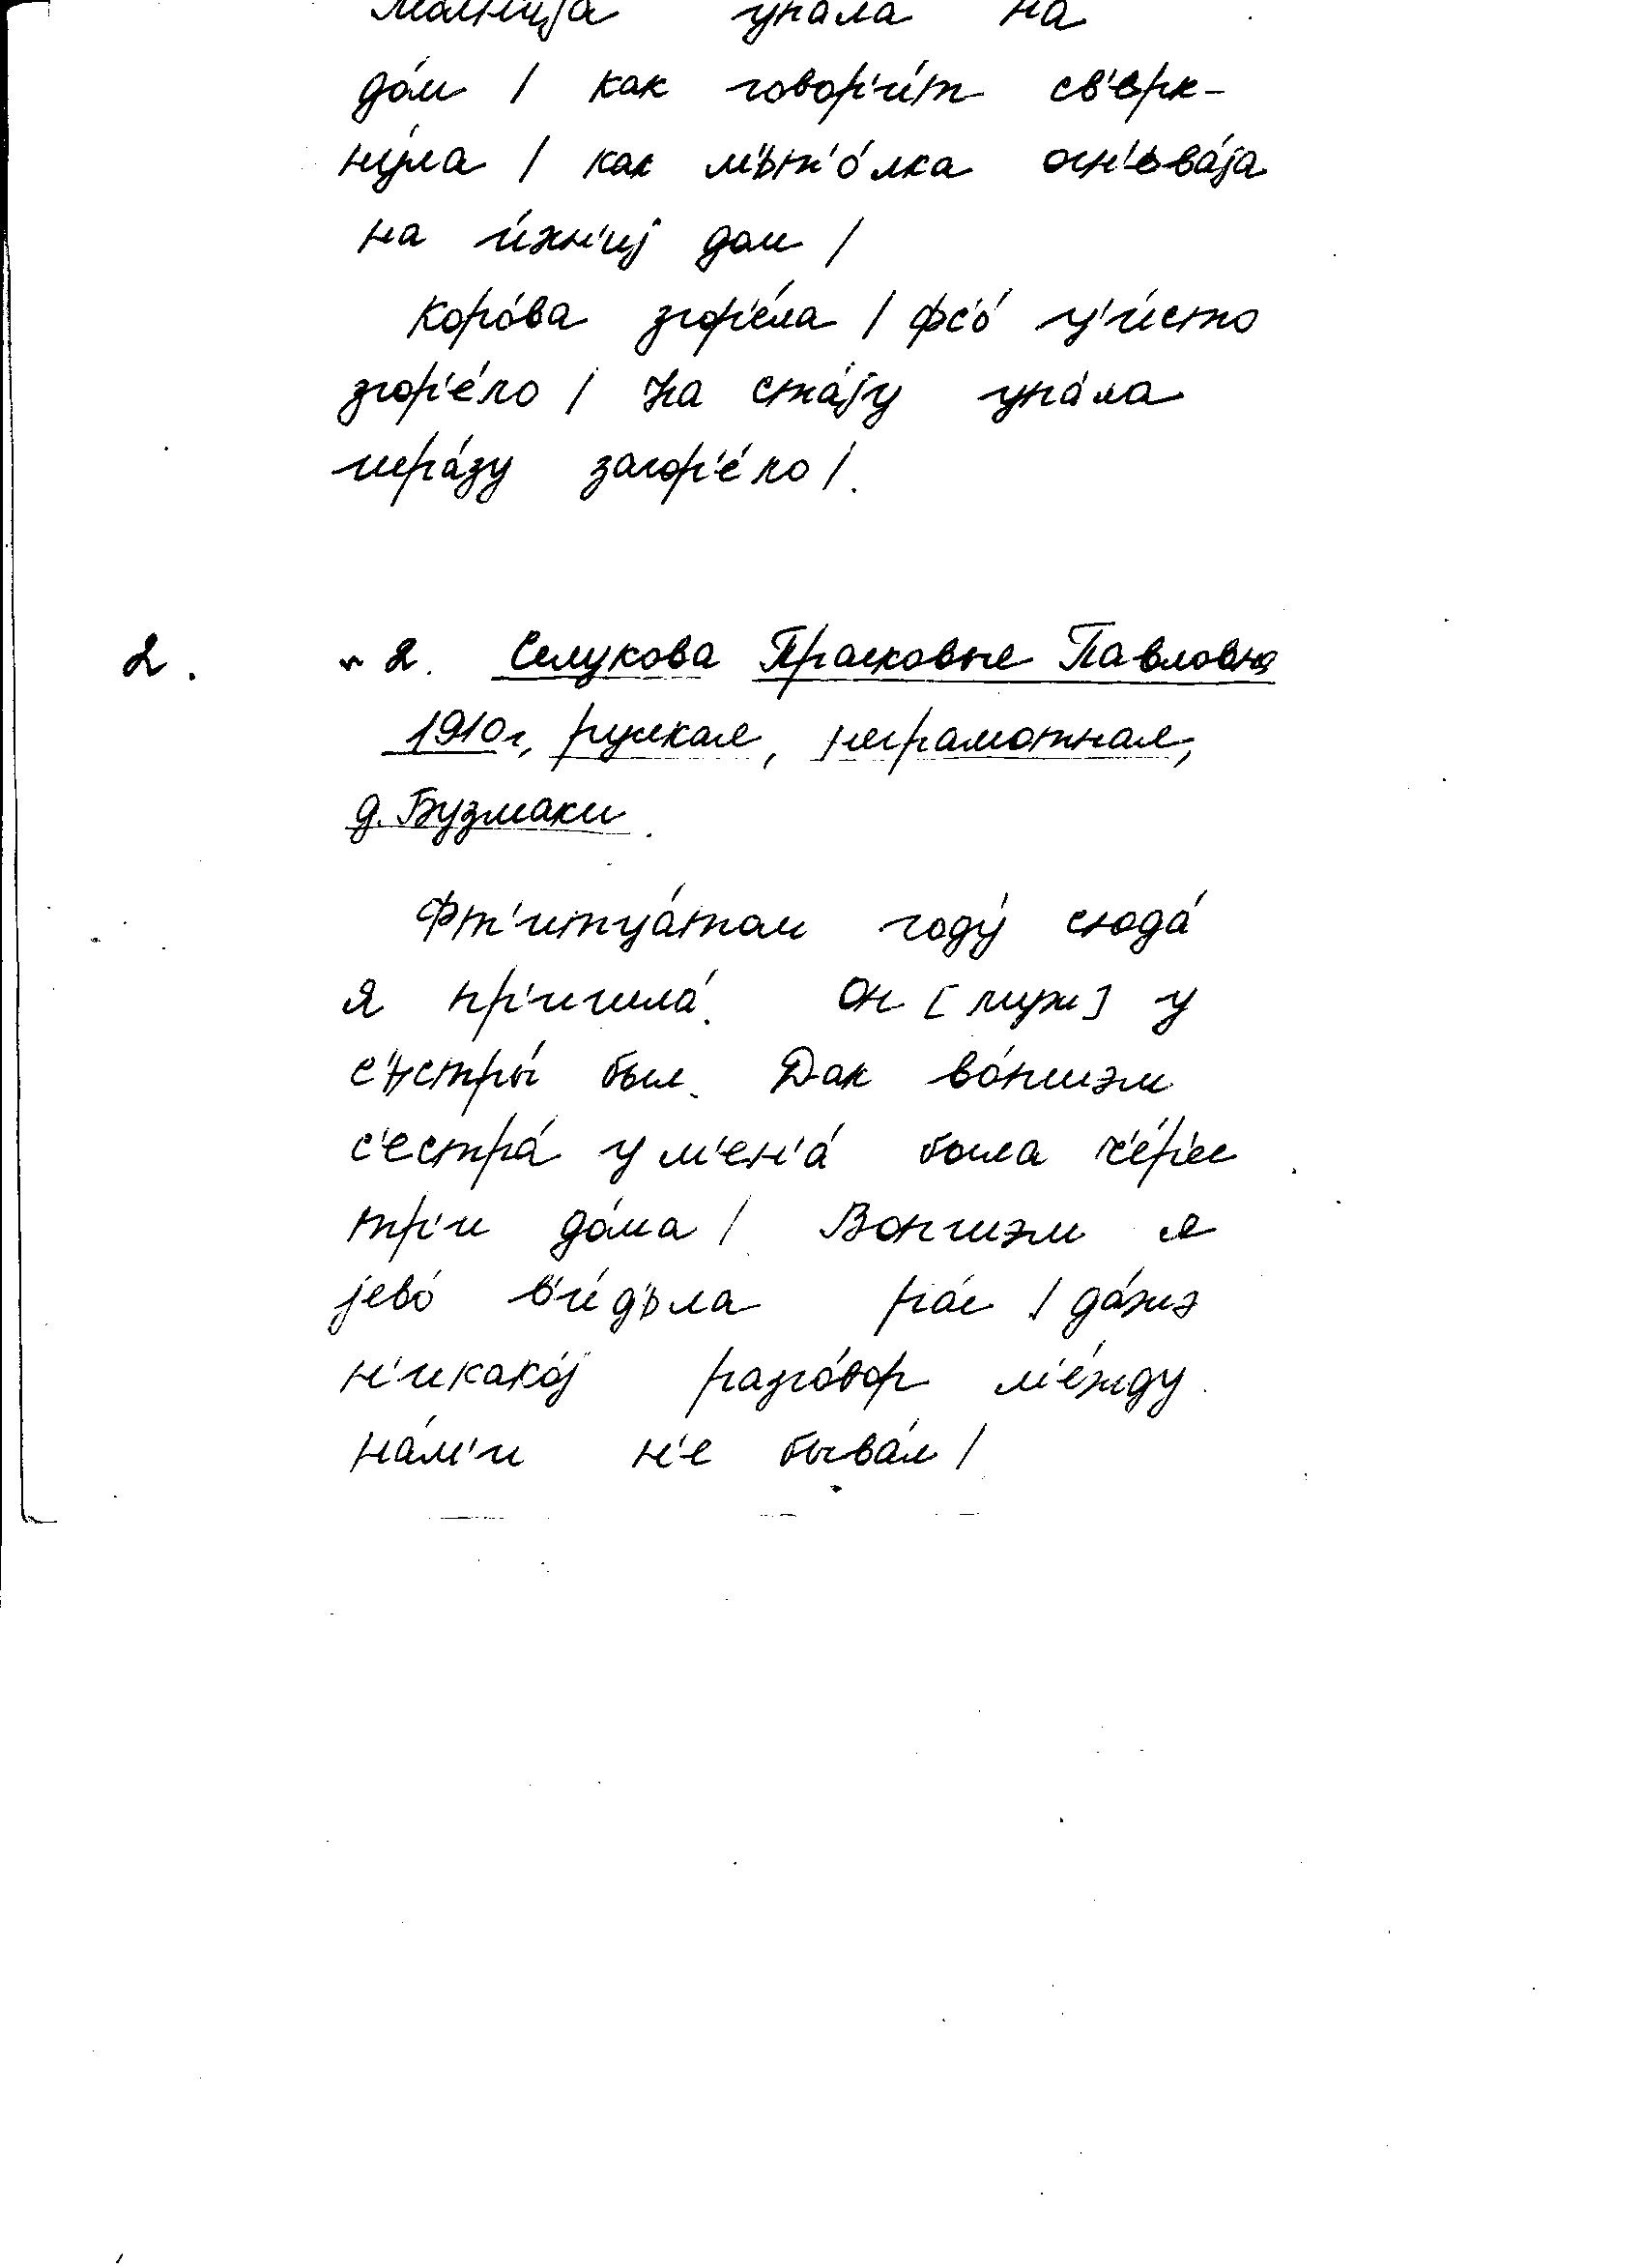 упала на
до́м / как говор'и́т св'ерк-
ну́ла / как м'ьт'о́лка огн'ьва́jа
на и́хн'иj дом /
коро́ва згор'е́ла / фс'о́ ц'и́сто
згор'е́ло / на ста́jу упа́ла
сра́зу загор'е́ло /.
2. н 2. Селукова Прасковья Павловна
1910 г, русская, неграмотная,
д. Бузмаки.
Фт'итца́том году́ сюда́
я пр'ишла́. Он [муж] у
с'ьстры́ был. Дак во́пшэм
с'естра́ у м'ен'а́ была ч'е́р'ес
тр'и до́ма / Вопшэм я
jево́ в'и́д'ьла ра́с / да́жэ
н'икако́j разго́вор м'е́жду
на́м'и н'е быва́л /